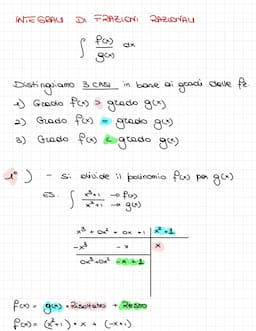 INTEGRALI DI FRAZIONI RAZIONALI
∫ f(x)/g(x) dx
Distinguiamo 3 CASI in base ai gradi delle fz.
1) Grado f(x) > grado g(x)
2) Grado f(x) = grado g(x)
3) Grado f(x) < grado g(x)
1°) - Si divide il polinomio f(x) per g(x)
ES. ∫ x³+1 → f(x)
x²+1 → g(x)
x³ + 0x² + 0x +1 | x²+1
-x³ -x | x
0x³+0x² -x+1
f(x) = g(x) * risultato + resto
f(x) = (x²+1) * x + (-x+1)